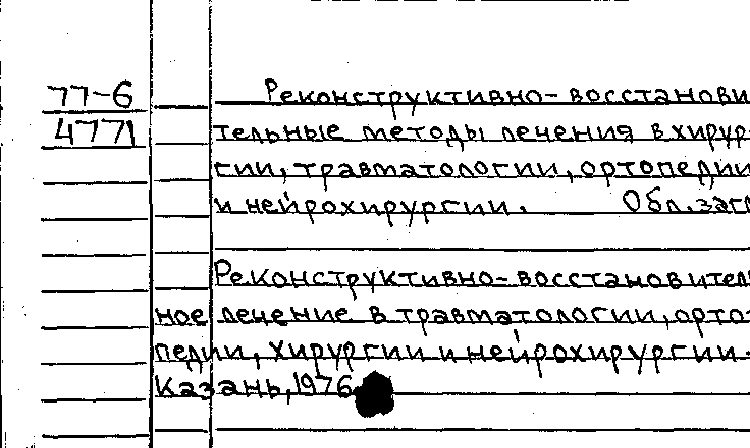 77-6 Реконструктивно-восстанови
4771 тельные методы лечения в хирур-
гии, травматологии, ортопедии
и нейрохирургии. Обл. загл
Реконструктивно-восстановитель
ное лечение в травматологии, орто-
педии, хирургии и нейрохирургии.-
Казань, 1976